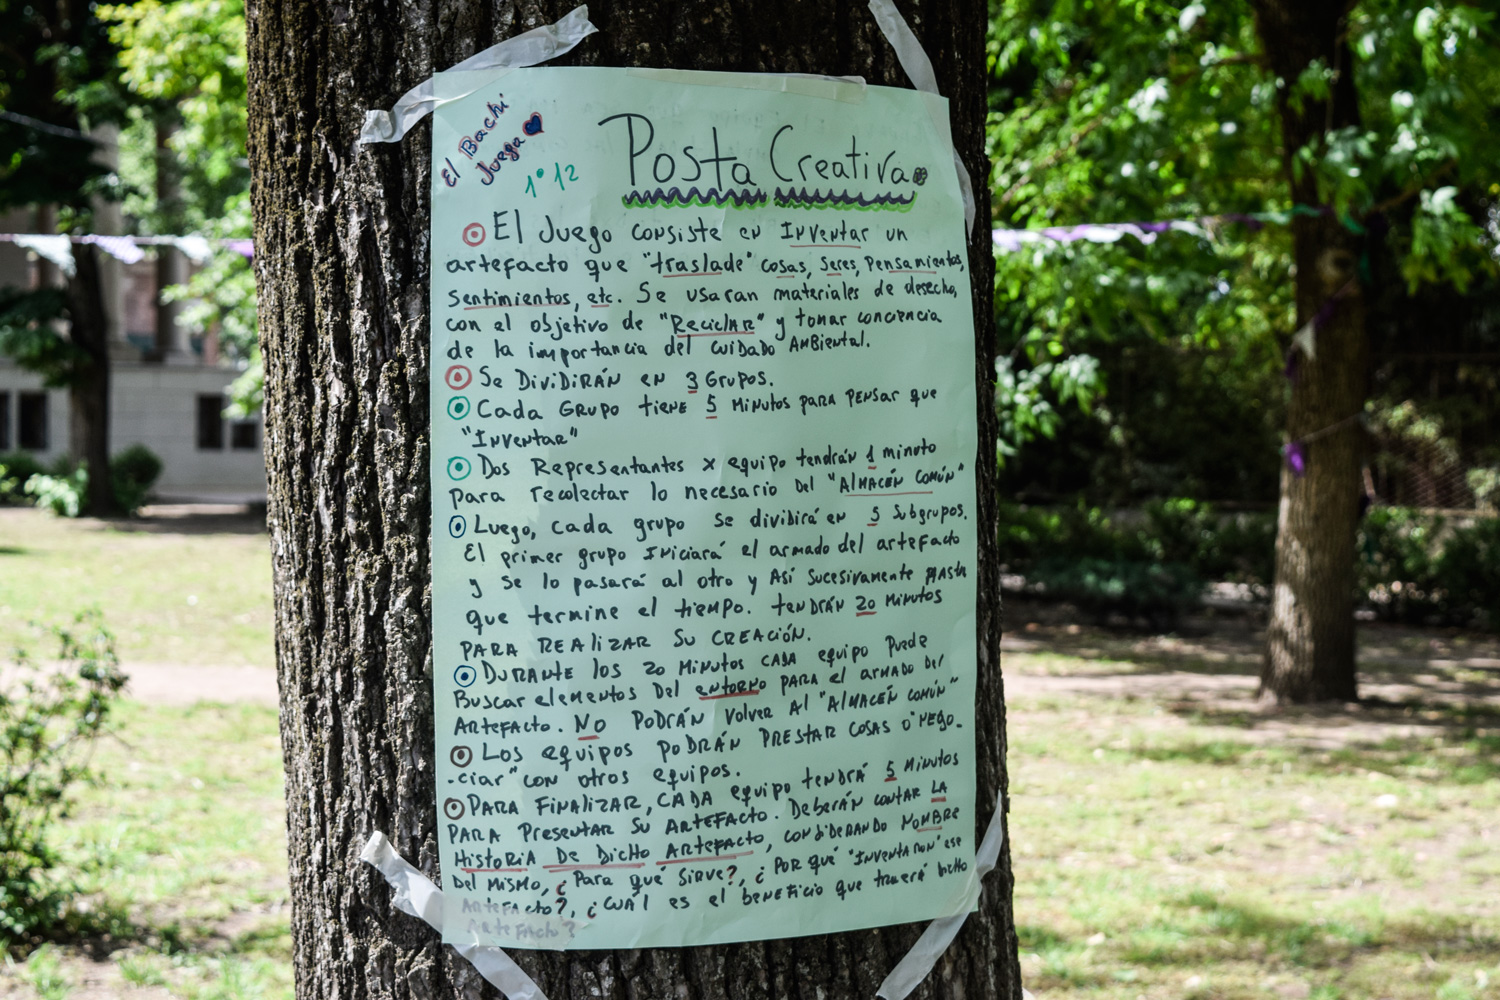 El Bachi
Juega
1° 12
Posta Creativa
El Juego consiste en Inventar un
artefacto que "traslade" cosas, seres, pensamientos,
sentimientos, etc. Se usaran materiales de desecho,
con el objetivo de "Reciclar" y tomar conciencia
de la importancia del cuidado Ambiental.
Se Dividirán en 3 Grupos.
Cada Grupo tiene 5 minutos para pensar que
"Inventar"
Dos Representantes x equipo tendrán 1 minuto
para recolectar lo necesario del "Almacén común"
Luego, cada grupo se dividirá en 5 subgrupos.
El primer grupo iniciará el armado del artefacto
y se lo pasará al otro y Así sucesivamente hasta
que termine el tiempo. tendrán 20 minutos
para realizar su creación.
Durante los 20 minutos cada equipo puede
Buscar elementos del entorno para el armado del
Artefacto. No podrán volver al "Almacén común"
Los equipos podrán prestar cosas o "nego-
-ciar" con otros equipos.
Para finalizar, cada equipo tendrá 5 minutos
para presentar su Artefacto. Deberán contar la
Historia De Dicho Artefacto, considerando nombre
Del mismo, ¿Para qué sirve?, ¿Por qué "inventaron" ese
Artefacto?, ¿Cuál es el beneficio que traerá dicho
Artefacto?